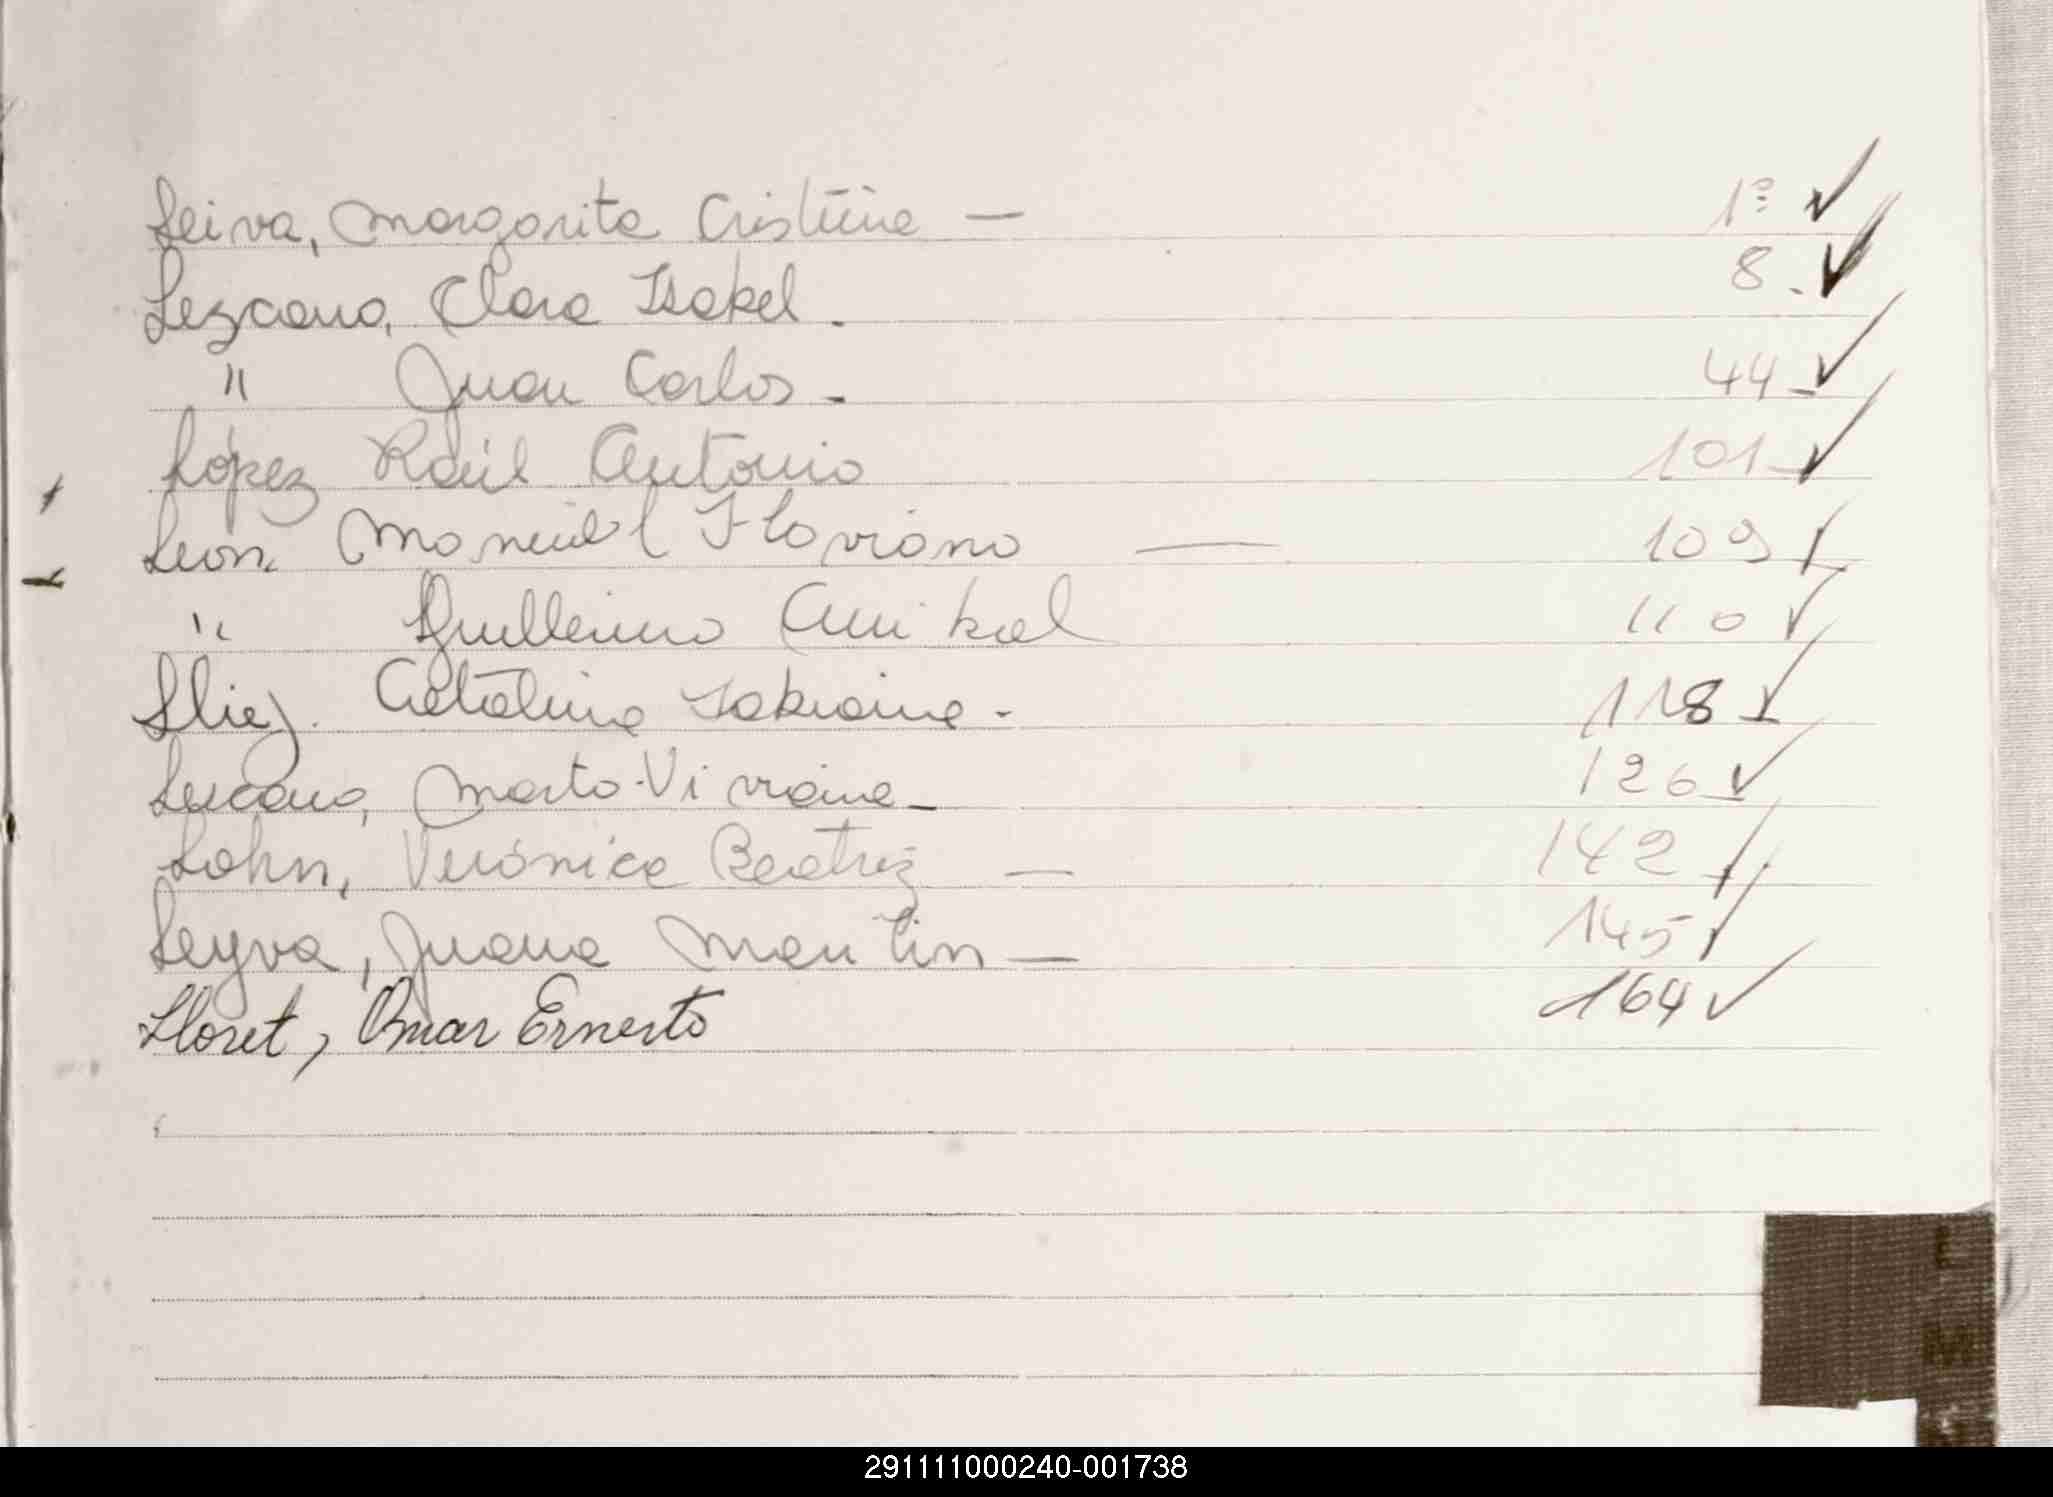 Leiva, Margarita Cristina — 1º ✓
Lezcano, Clara Isabel. 8. ✓
" Juan Carlos. 44 ✓
López Raúl Antonio 101 ✓
León, Manuel Floriano — 109 ✓
" Guillermo Anibal 110 ✓
Catalina Fabiana. 118 ✓
Lescano, Marta Viviana 126 ✓
Lohn, Verónica Beatriz — 142 ✓
Leyva, Juana — 145 ✓
Lloret, Omar Ernesto 164 ✓
291111000240-001738